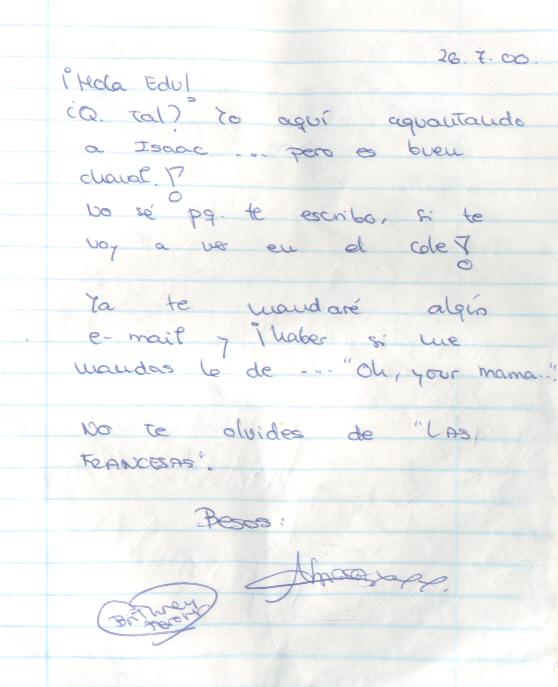 26.7.00.
¡Hola Edu!
¿Q. tal? Yo aquí aguantando
a Isaac ... pero es buen
chaval.!?
No sé pq. te escribo, si te
voy a ver en el cole!
Ya te mandaré algún
e-mail y ¡haber si me
mandas lo de ... "Oh, your mama..".
No te olvides de "LAS
FRANCESAS".
Besos: